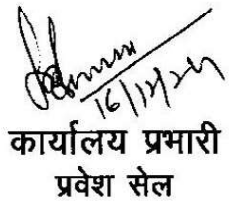 16/12/24
कार्यालय प्रभारी
प्रवेश सेल